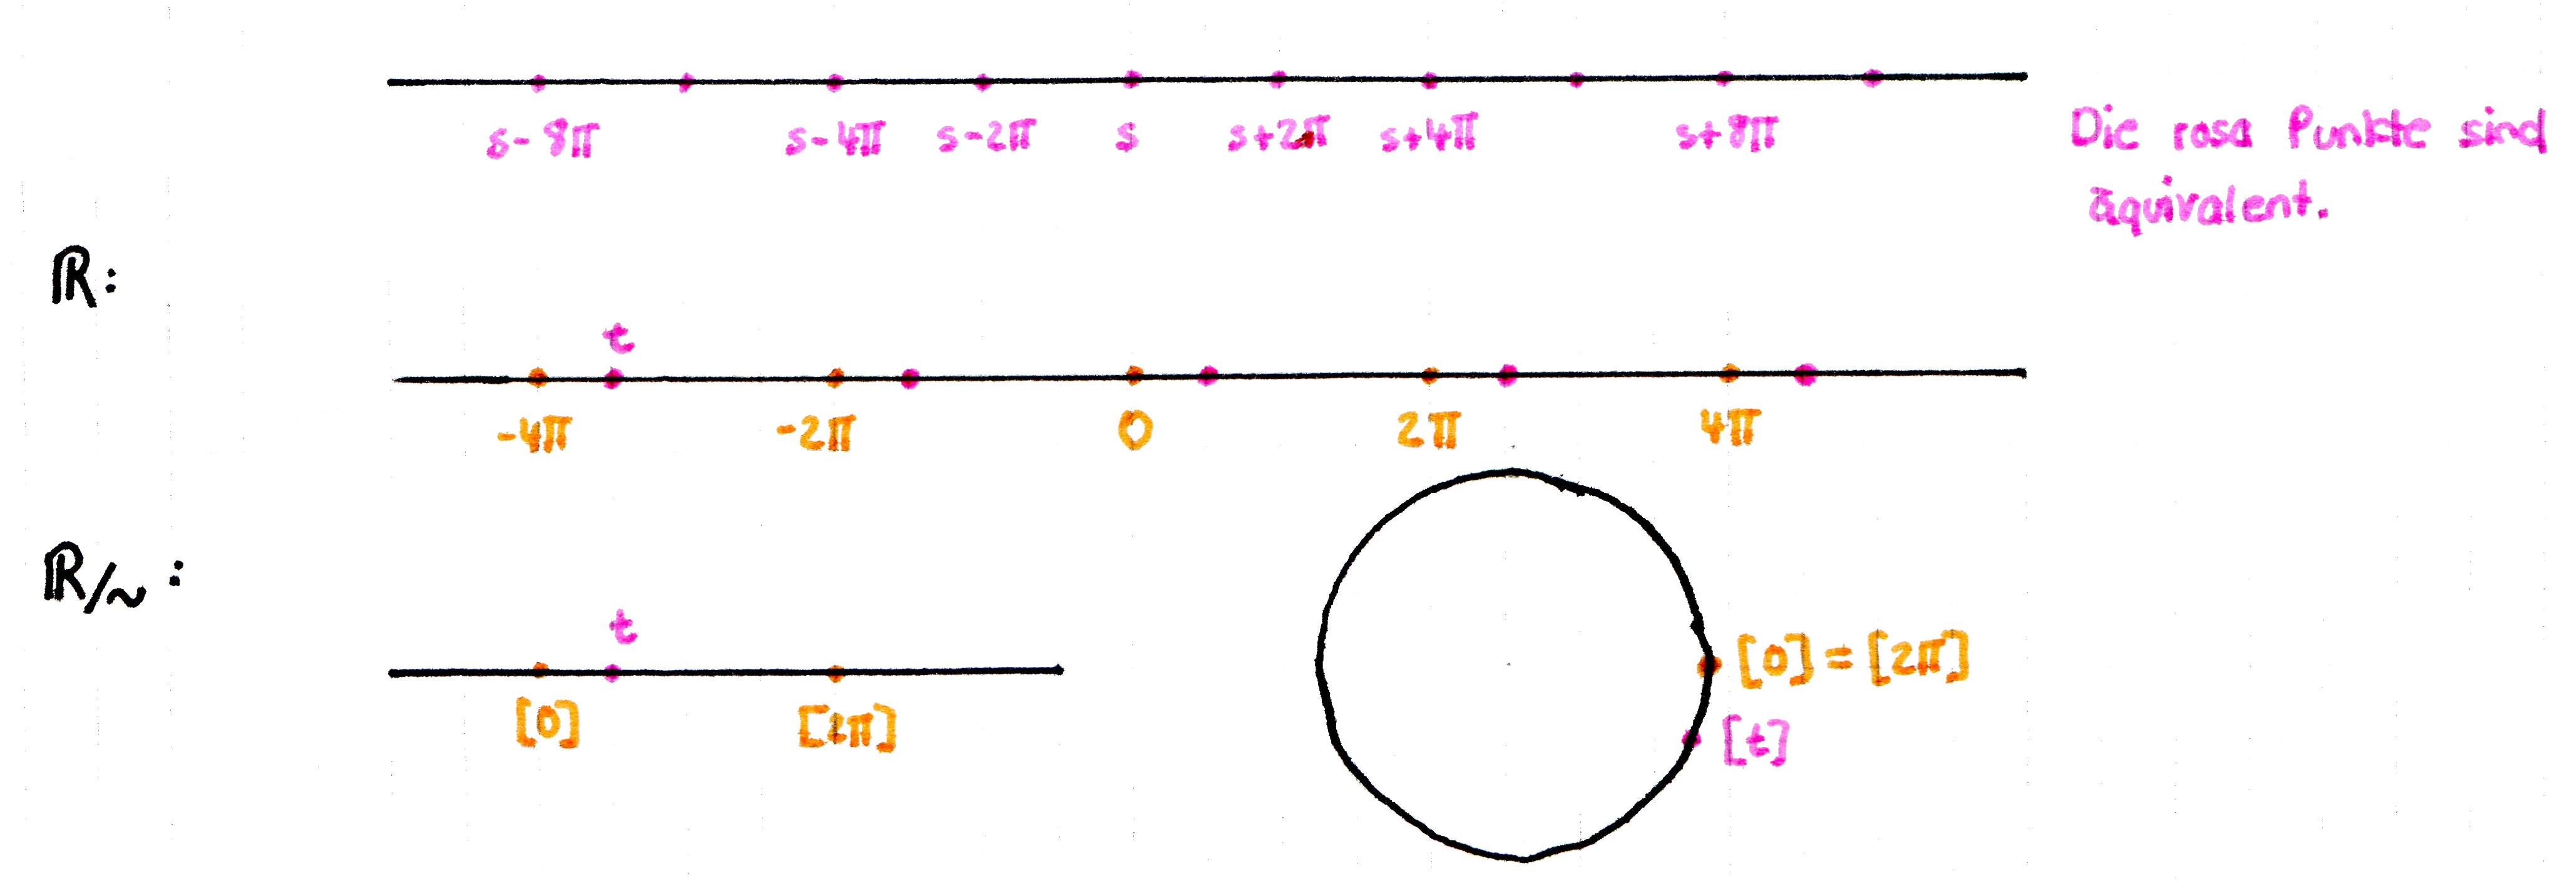 s-8π s-4π s-2π s s+2π s+4π s+8π
Die rosa Punkte sind
äquivalent.
ℝ:
t
-4π -2π 0 2π 4π
ℝ/~:
t
[0] [2π]
[0] = [2π]
[t]